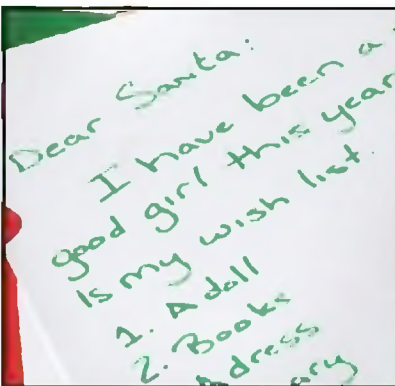 Dear Santa:
I have been a
good girl this year
is my wish list.
1. A doll
2. Books
A dress